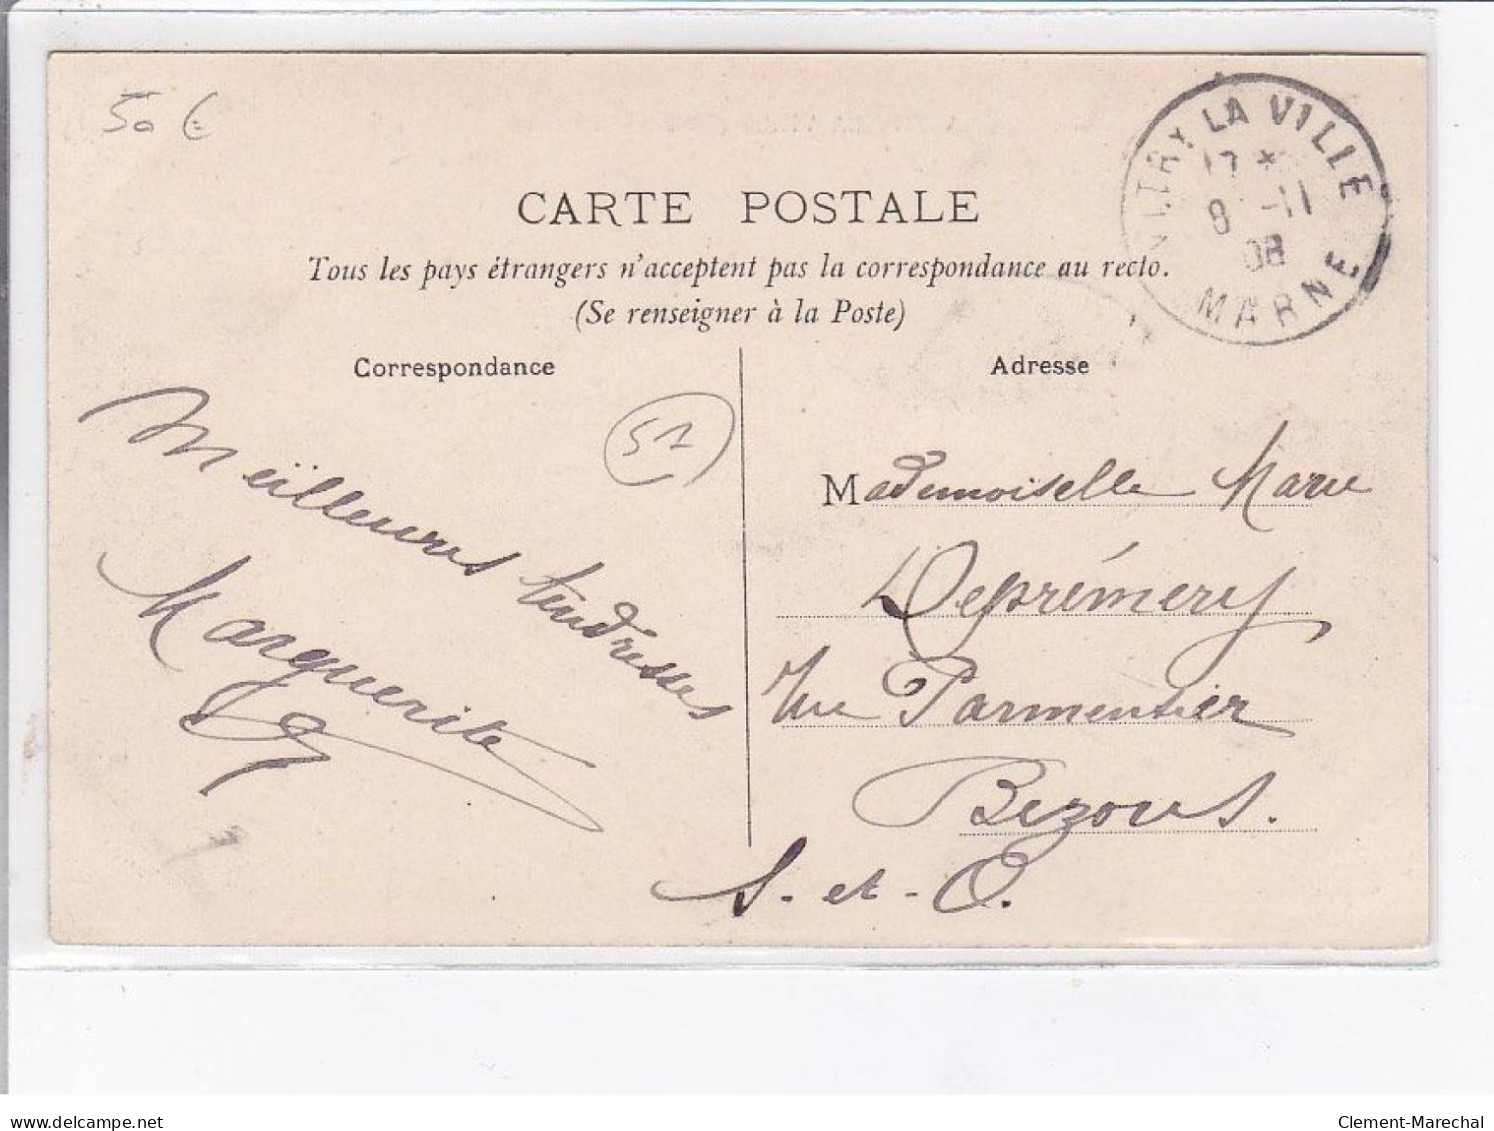 50 €
VITRY LA VILLE
17 *
8 -11
08
MARNE
CARTE POSTALE
Tous les pays étrangers n'acceptent pas la correspondance au recto.
(Se renseigner à la Poste)
Correspondance
51
Meilleures tendresses
Marguerite
Adresse
Mademoiselle Marie
Deprémery
Rue Parmentier
Bezons.
S.-et-O.
www.delcampe.net
Clement-Marechal